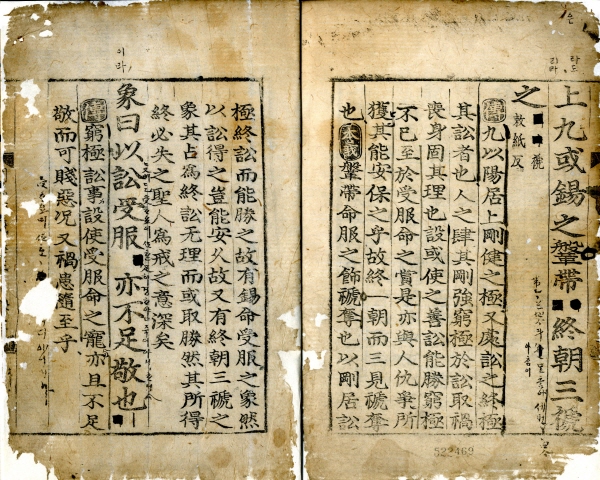 은
라도
리라
上九或錫之鞶帶終朝三褫
之 褫
敕紙反
傳九以陽居上剛健之極又處訟之終極
其訟者也人之肆其剛強窮極於訟取禍
喪身固其理也設或使之善訟能勝窮極
不已至於受服命之賞是亦與人仇爭所
獲其能安保之乎故終一朝而三見褫奪
也本義鞶帶命服之飾褫奪也以剛居訟
522469
이라
極終訟而能勝之故有錫命受服之象然
以訟得之豈能安久故又有終朝三褫之
象其占為終訟无理而或取勝然其所得
終必失之聖人為戒之意深矣
象曰以訟受服亦不足敬也
傳窮極訟事設使受服命之寵亦且不足
敬而可賤惡況又禍患隨至乎